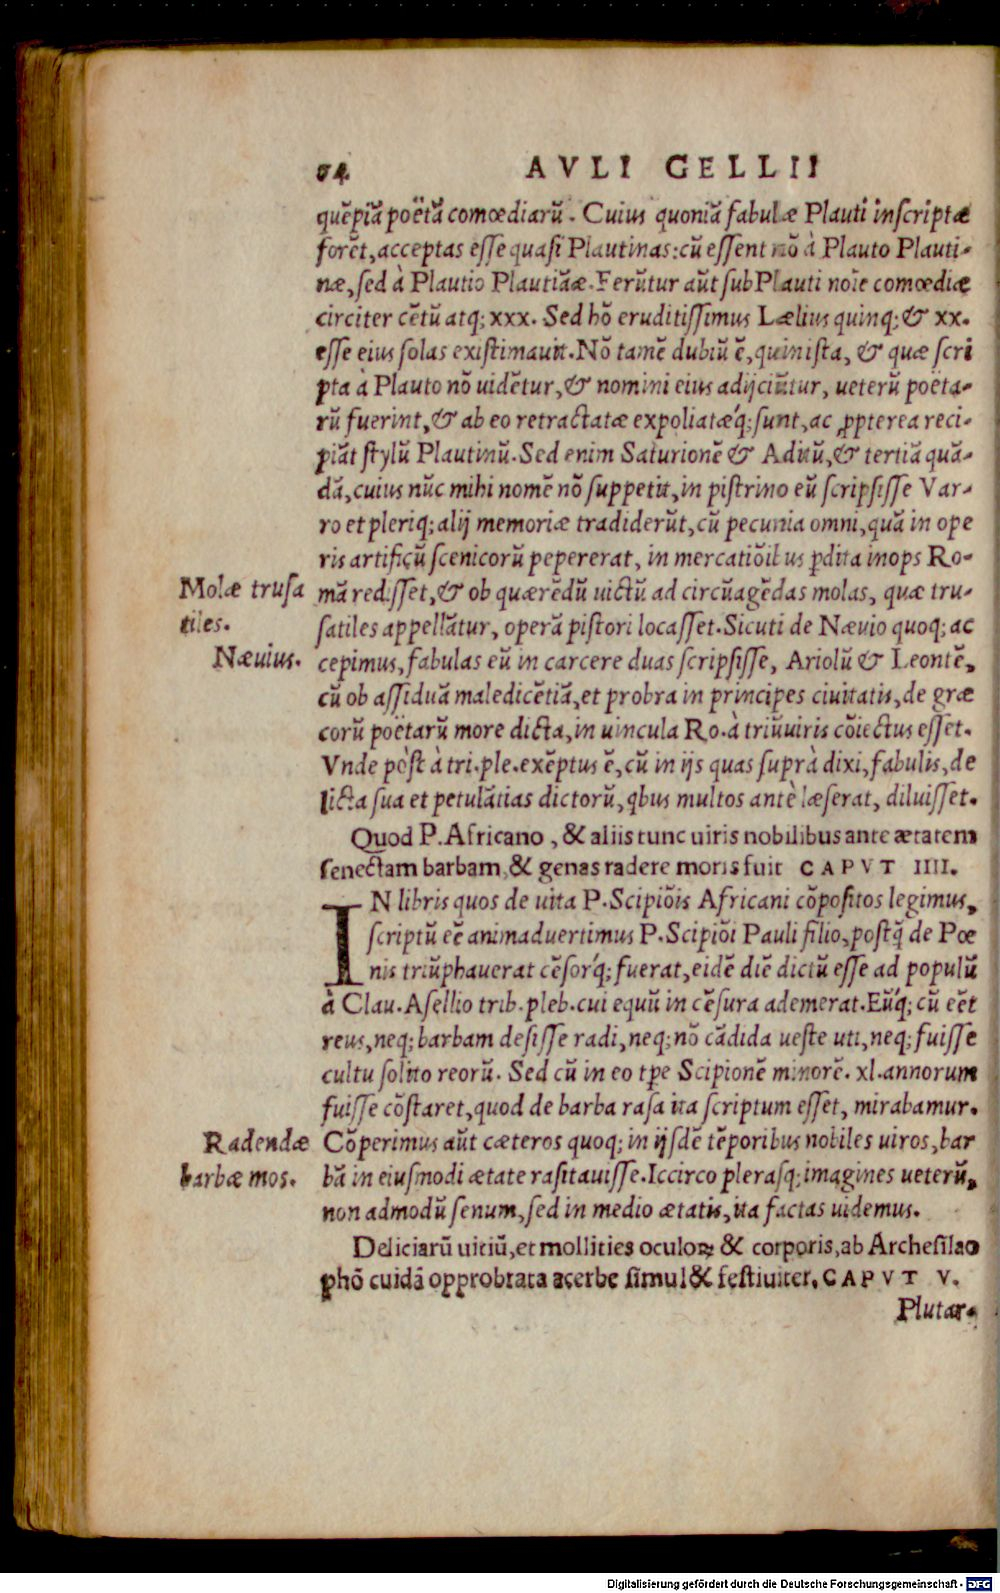 84 AVLI GELLII
quẽpiã poëtã comœdiarũ. Cuius quoniã fabulæ Plauti inscriptæ
forẽt, acceptas esse quasi Plautinas: cũ essent nõ à Plauto Plauti-
næ, sed à Plautio Plautiãæ. Ferũtur aũt sub Plauti noĩe comœdiæ
circiter cẽtũ atq; xxx. Sed hõ eruditissimus Lælius quinq; & xx.
esse eius solas existimauit. Nõ tamẽ dubiũ ẽ, quin ista, & quæ scri
pta à Plauto nõ uidẽtur, & nomini eius adijciũtur, ueterũ poëta-
rũ fuerint, & ab eo retractatæ expoliatæq́; sunt, ac ꝓpterea reci-
piãt stylũ Plautinũ. Sed enim Saturionẽ & Aditũ, & tertiã quã-
dã, cuius nũc mihi nomẽ nõ suppetit, in pistrino eũ scripsisse Var-
ro et pleriq; alij memoriæ tradiderũt, cũ pecunia omni, quã in ope
ris artificũ scenicorũ pepererat, in mercatiõibus ꝑdita inops Ro-
Molæ trusa
mã redisset, & ob quærẽdũ uictũ ad circũagẽdas molas, quæ tru-
tiles.
satiles appellãtur, operã pistori locasset. Sicuti de Næuio quoq; ac
Næuius.
cepimus, fabulas eũ in carcere duas scripsisse, Ariolũ & Leontẽ,
cũ ob assiduã maledicẽtiã, et probra in principes ciuitatis, de græ
corũ poëtarũ more dicta, in uincula Ro. à triũuiris cõiectus esset.
Vnde pòst à tri. ple. exẽptus ẽ, cũ in ijs quas suprà dixi, fabulis, de
licta sua et petulãtias dictorũ, q̃bus multos antè læserat, diluisset.
Quod P. Africano, & aliis tunc uiris nobilibus ante ætatem
senectam barbam, & genas radere moris fuit CAPVT IIII.
IN libris quos de uita P. Scipiõis Africani cõpositos legimus,
scriptũ eẽ animaduertimus P. Scipiõi Pauli filio, postq̃ de Pœ
nis triũphauerat cẽsorq́; fuerat, eidẽ diẽ dictũ esse ad populũ
à Clau. Asellio trib. pleb. cui equũ in cẽsura ademerat. Eũq́; cũ eẽt
reus, neq; barbam desisse radi, neq; nõ cãdida ueste uti, neq; fuisse
cultu solito reorũ. Sed cũ in eo tp̃e Scipionẽ minorẽ. xl. annorum
fuisse cõstaret, quod de barba rasa ita scriptum esset, mirabamur.
Radendæ
Cõperimus aũt cæteros quoq; in ijsdẽ tẽporibus nobiles uiros, bar
barbæ mos.
bã in eiusmodi ætate rasitauisse. Iccirco plerasq; imagines ueterũ,
non admodũ senum, sed in medio ætatis, ita factas uidemus.
Deliciarũ uitiũ, et mollities oculoꝝ & corporis, ab Archesilao
phõ cuidã opprobrata acerbe simul & festiuiter. CAPVT V.
Plutar-
Digitalisierung gefördert durch die Deutsche Forschungsgemeinschaft - DFG